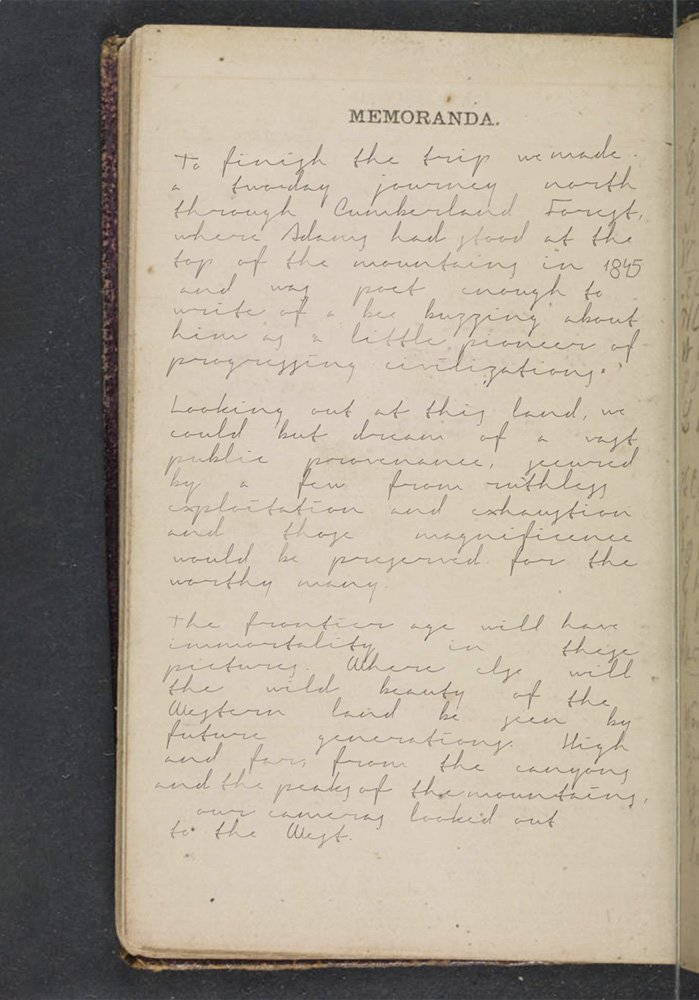 MEMORANDA.
To finish the trip we made
a twoday journey north
through Cumberland Forest,
where Adams had stood at the
top of the mountains in 1845
and was poet enough to
write of a bee buzzing about
him as a little pioneer of
progressing civilizations."
Looking out at this land, we
could but dream of a vast
public provenance, secured
by a few from ruthless
exploitation and exhaustion
and those magnificence
would be preserved for the
worthy many.
The frontier age will have
immortality in these
pictures. Where else will
the wild beauty of the
Western land be seen by
future generations. High
and far, from the canyons
and the peaks of the mountains,
our cameras looked out
to the West.